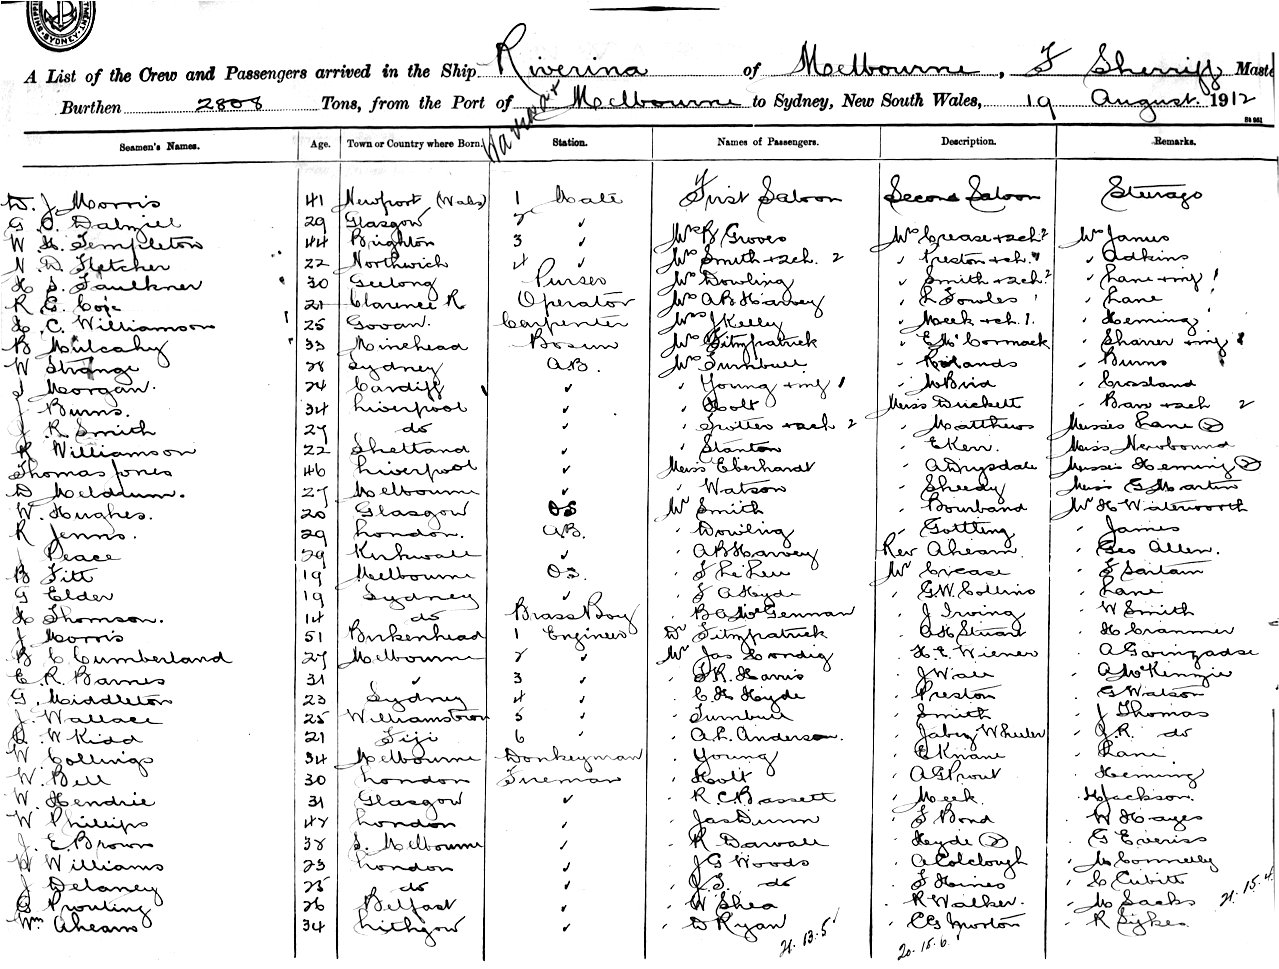 SHIPPING SYDNEY
A List of the Crew and Passengers arrived in the Ship Riverina of Melbourne, F Sherriff Maste
Burthen 2808 Tons, from the Port of Melbourne to Sydney, New South Wales, 19 August 1912
Seamen's Names. Age. Town or Country where Born. Station. Names of Passengers. Description. Remarks.
D. J Morris 41 Newport (Wales) 1 Mate First Saloon Second Saloon Steerage
G. C. Dalziell 29 Glasgow 2 " Mrs B Groves Mrs Crease + 2ch 2 Mrs James
W H Templeton 44 Brighton 3 " Mrs Smith + 2ch. 2 " Preston + ch. 1 " Adkins
N. D. Fletcher 22 Northwich 4 " Mrs Dowling " Smith + 2ch. 2 " Lane + inf 1
H S. Faulkner 30 Geelong Purser Mrs A B Harvey " L Fowles " Lane
R G. Coxe 21 Clarence R Operator Mrs J Kelly " Meek + ch. 1. " Heming
H. C. Williamson 25 Govan. Carpenter Mrs Fitzpatrick " E McCormack " Sharer + inf
B Mulcahy 33 Minehead Bosun Mrs Turnbull " Rolands " Burns
W Strange 28 Sydney A.B. " Young + inf 1 " McBrid " Crosland
J Morgan. 24 Cardiff " " Holt Miss Duckett " Barr + 2ch 2
J Burns. 34 Liverpool " " Trotter + 2ch 2 " Matthews Misses Lane (2)
J. R. Smith 27 do " " Stanton " E Kerr. Miss Newbound
R Williamson 22 Shetland " Miss Eberhardt " A Drysdale Misses Heming (2)
Thomas Jones 46 Liverpool " " Watson " Sheedy Miss G Martin
D Meldrum. 27 Melbourne " Mr Smith " Bourband Mr H Waterworth
W. Hughes. 20 Glasgow OS " Dowling " Gottling " James
R Jenns. 29 London. A.B. " A B Harvey Rev Ahearn " Geo Allen.
J Peace 29 Kirkwall " " J Le Lieu Mr Crease
B Fitt 19 Melbourne O.S. " F A Hyde " G.W. Collins " Lane
G Elder 19 Sydney " " B A McGennan " J Irving " W Smith
H Thomson. 14 do Brass Boy Dr Fitzpatrick " A H Stuart " H Crammer
J Morris 51 Birkenhead 1 Engineer Mr Jas " H. E. Wiener
B C Cumberland 27 Melbourne 2 " " F.R. Harris " J Wall " A McKenzie
E. R. Barnes 31 " 3 " " C H Hyde " Preston " G Watson
G. Middleton 23 Sydney 4 " " Turnbull " Smith " J Thomas
J. Wallace 25 Williamstown 5 " " A. L. Anderson. " Jabez Wheeler " J.R. do
D. W Kidd 21 Fiji 6 " " Young " Lane
W Collings 34 Melbourne Donkeyman " Holt " A G Prout " Heming
W. Bell 30 London Fireman " R C Bassett " Meek. " H Jackson.
W. Hendrie 31 Glasgow " " Jas Dunn " F Bond " W Hayes
W Phillips 42 London " " R Darvall " Hyde (2) " G Everiss
J. E Brown 32 S. Melbourne " " J G Woods " A Colclough " M Connelly
H Williams 23 London " " J.S. do " F Haines " C Cubitt
J Delaney 25 do " " W Shea " R Walker. " M Sachs 21.15.4
G Prouting 26 Belfast " " D Ryan " E G Morton " R Sykes
Wm Ahearn 34 Lithgow " 21.13.5 20.15.6